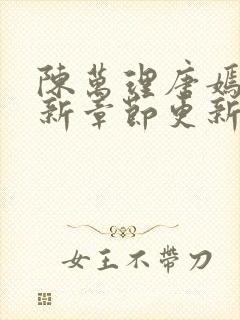 陳萬理唐嫣
新章節更新
女王不帶刀